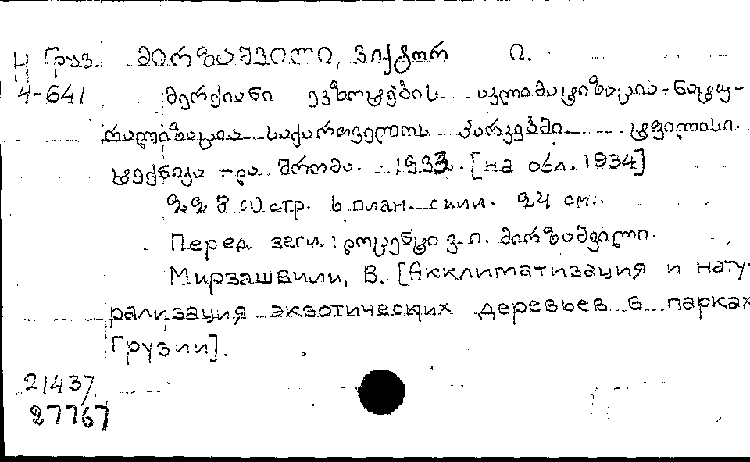 Ц Груз. მირზაშვილი, ვიქტორ ი.
4-641 მერქიანი ეგზოტების აკლიმატიზაცია-ნატუ-
რალიზაცია საქართველოს პარკებში. ტფილისი.
ტექნიკა და შრომა. 1933. [на обл. 1934]
стр. 6 план. с илл. 24 см.
Перед загл.: დოცენტი ვ.ი. მირზაშვილი.
Мирзашвили, В. [Акклиматизация и нату-
рализация экзотических деревьев в парках
Грузии].
21437
27767